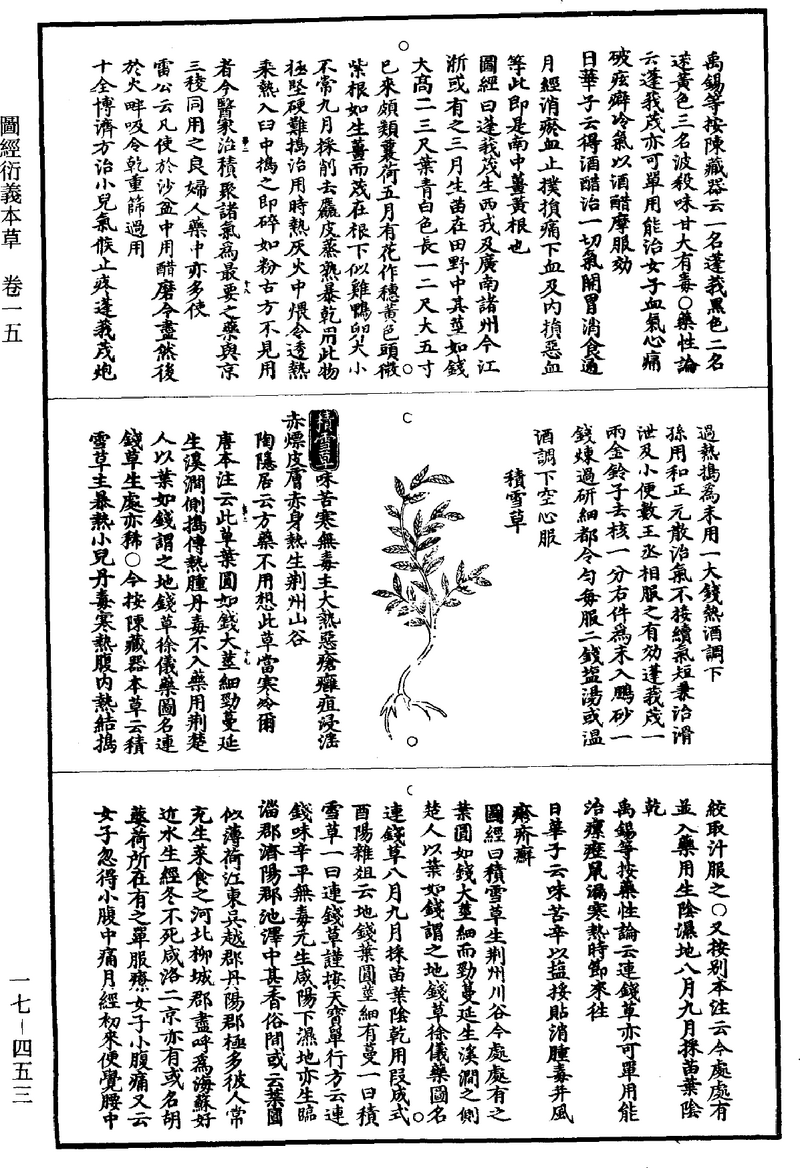 禹錫等按陳藏器云一名蓬莪黑色二名
蒁黃色三名波殺味甘大有毒○藥性論
云蓬莪茂亦可單用能治女子血氣心痛
破痃癖冷氣以酒醋摩服効
日華子云得酒醋治一切氣開胃消食通
月經消瘀血止撲損痛下血及內損惡血
等此即是南中薑黃根也
圖經曰蓬莪茂生西戎及廣南諸州今江
浙或有之三月生苗在田野中其莖如錢
大高二三尺葉青白色長一二尺大五寸
已來頗類蘘荷五月有花作穗黃色頭微
紫根如生薑而茂在根下似雞鴨卵大小
不常九月採削去麤皮蒸熟暴乾用此物
極堅硬難擣治用時熱灰火中煨令透熱
乘熱入臼中擣之即碎如粉古方不見用
者今醫家治積聚諸氣為最要之藥與京
三稜同用之良婦人藥中亦多使
雷公云凡使於沙盆中用醋磨令盡然後
於火畔吸令乾重篩過用
十全博濟方治小兒氣候止疼蓬莪茂炮
過熱擣為末用一大錢熱酒調下
孫用和正元散治氣不接續氣短兼治滑
泄及小便數王丞相服之有効蓬莪茂一
兩金鈴子去核一分右件為末入鵬砂一
錢煉過研細都令勻每服二錢塩湯或溫
酒調下空心服
積雪草
積雪草味苦寒無毒主大熱惡瘡癰疽浸淫
赤熛皮膚赤身熱生荆州山谷
陶隱居云方藥不用想此草當寒冷爾
唐本注云此草葉圓如錢大莖細勁蔓延
生溪澗側擣傅熱腫丹毒不入藥用荆楚
人以葉如錢謂之地錢草徐儀藥圖名連
錢草生處亦稀○今按陳藏器本草云積
雪草主暴熱小兒丹毒寒熱腹內熱結擣
絞取汁服之○又按別本注云今處處有
並入藥用生陰濕地八月九月採苗葉陰
乾
禹錫等按藥性論云連錢草亦可單用能
治瘰癧鼠漏寒熱時節來往
日華子云味苦辛以塩挼貼消腫毒并風
疹疥癬
圖經曰積雪草生荆州川谷今處處有之
葉圓如錢大莖細而勁蔓延生溪澗之側
楚人以葉如錢謂之地錢草徐儀藥圖名
連錢草八月九月採苗葉陰乾用段成式
酉陽雜俎云地錢葉圓莖細有蔓一曰積
雪草一曰連錢草謹按天寶單行方云連
錢味辛平無毒元生咸陽下濕地亦生臨
淄郡濟陽郡池澤中甚香俗間或云葉圓
似薄荷江東吳越郡丹陽郡極多彼人常
充生菜食之河北柳城郡盡呼為海蘇好
近水生經冬不死咸洛二京亦有或名胡
薄荷所在有之單服療女子小腹痛又云
女子忽得小腹中痛月經初來便覺腰中
圖經衍義本草　卷一五
一七-四五三